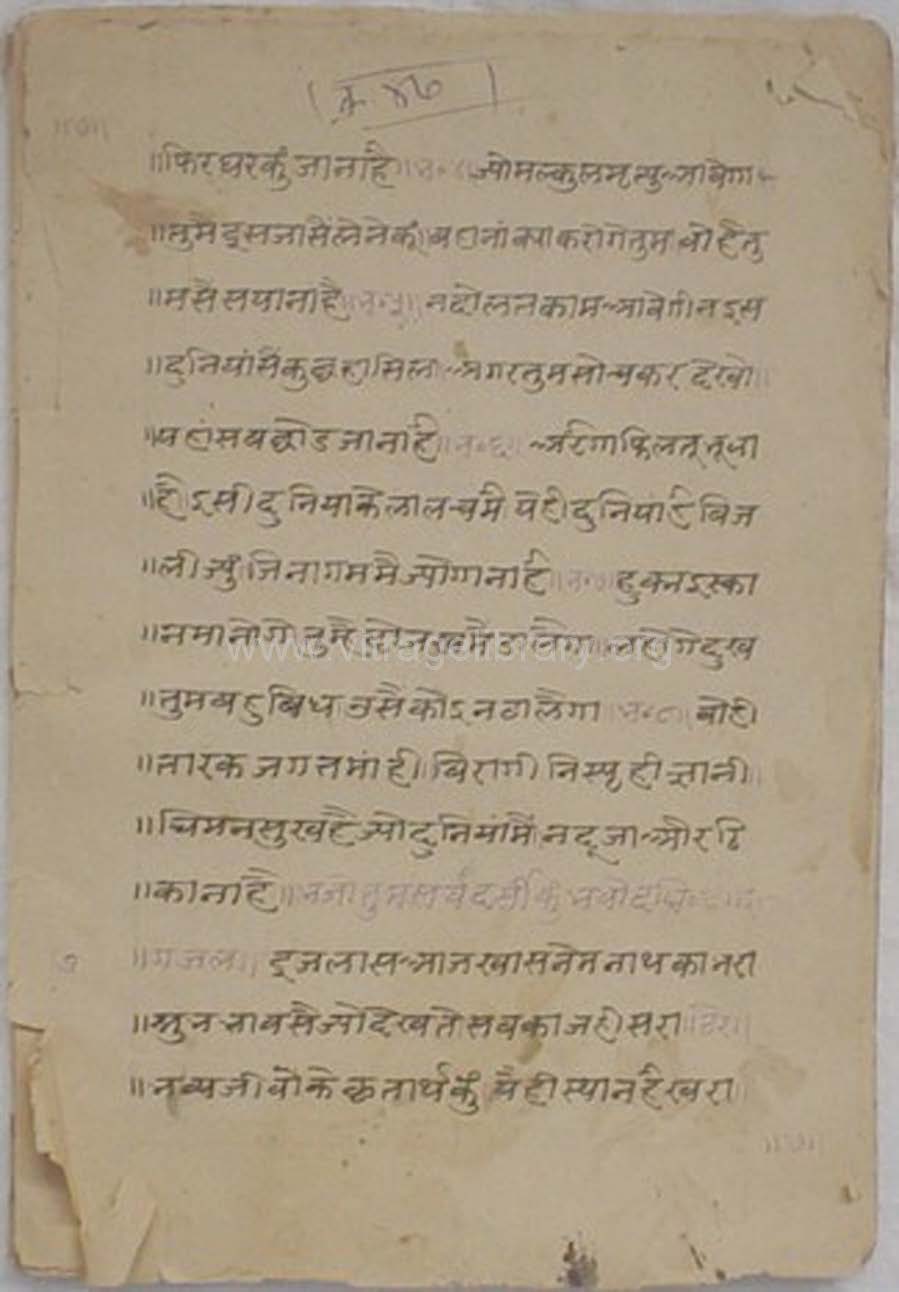 क्र ४७
॥७॥
॥फिरघरकुं जानाहै॥भ॰४॥ज्योमलकुलमृत्यु आवेगा
॥तुमै इसजासैंलेनेकुं।बहानांक्याकरोगेतुम।वोहैतु
॥मसैसयानाहै॥भ॰५॥नदोलतकामआवेगी।नइस
॥दुनियांसैंकुछहासिल।अगरतुमसोचकरदेखो॥
॥यहांसबछोडजानाहै॥भ॰६॥
॥है।इसीदुनियाकेलालचमै।येहीदुनिया
॥ली।ज्युं।जिनागममैज्योगानाहै॥भ॰७॥हुकमइस्का
॥नमानोगे।तुमैदोजखमैडालैगा।लहोगेदुख
॥तुमबहुबिध।उसैकोइनटालैगा॥भ॰८॥वोही
॥तारकजगतमांही।बिरागीनिस्पृहीज्ञानी॥
॥चिमनसुखहैज्योदुनियांमैं।नदूजाऔरठि
॥कानाहै॥भजोतुमसर्वदर्सीकुं
७ ॥गजल॥ इजलासआजखासनेमनाथकाभरा
॥सुनभावसैज्योदेखतेसबकाजहीसरा
॥भव्यजीवोकेकृतार्थकुं।येहीस्थानहैखरा
॥७॥
www.vitragelibrary.org